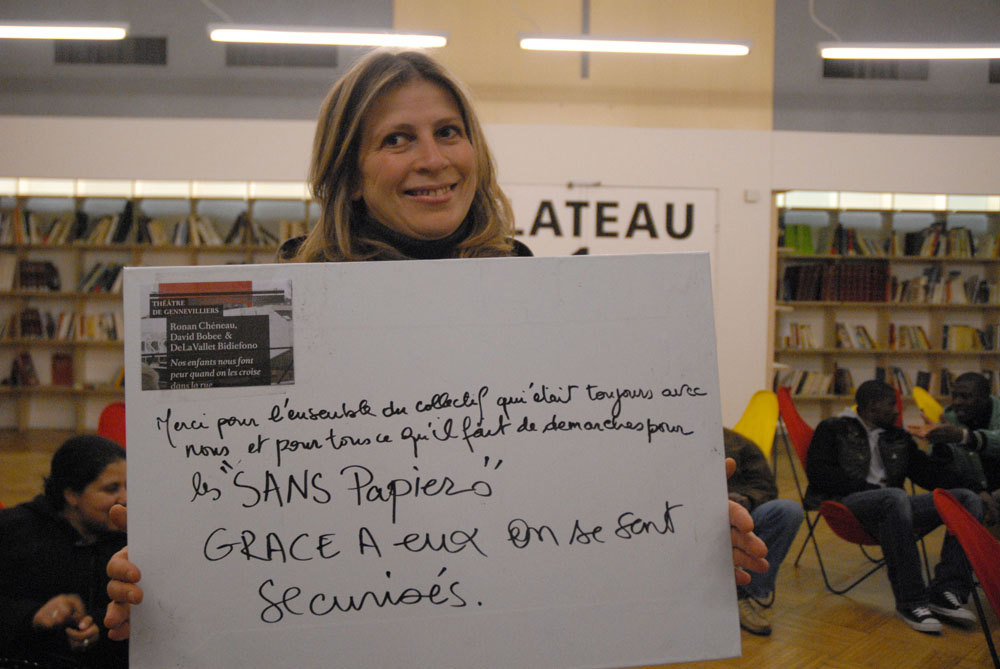 LATEAU
THÉÂTRE
DE GENNEVILLIERS
Ronan Chéneau,
David Bobee &
DeLaVallet Bidiefono
Nos enfants nous font
peur quand on les croise
dans la rue
Merci pour l'ensemble du collectif qu'était toujours avec
nous et pour tous ce qu'il fait de demarches pour
les "SANS Papiers"
GRACE A eux on se sent
Securisés.